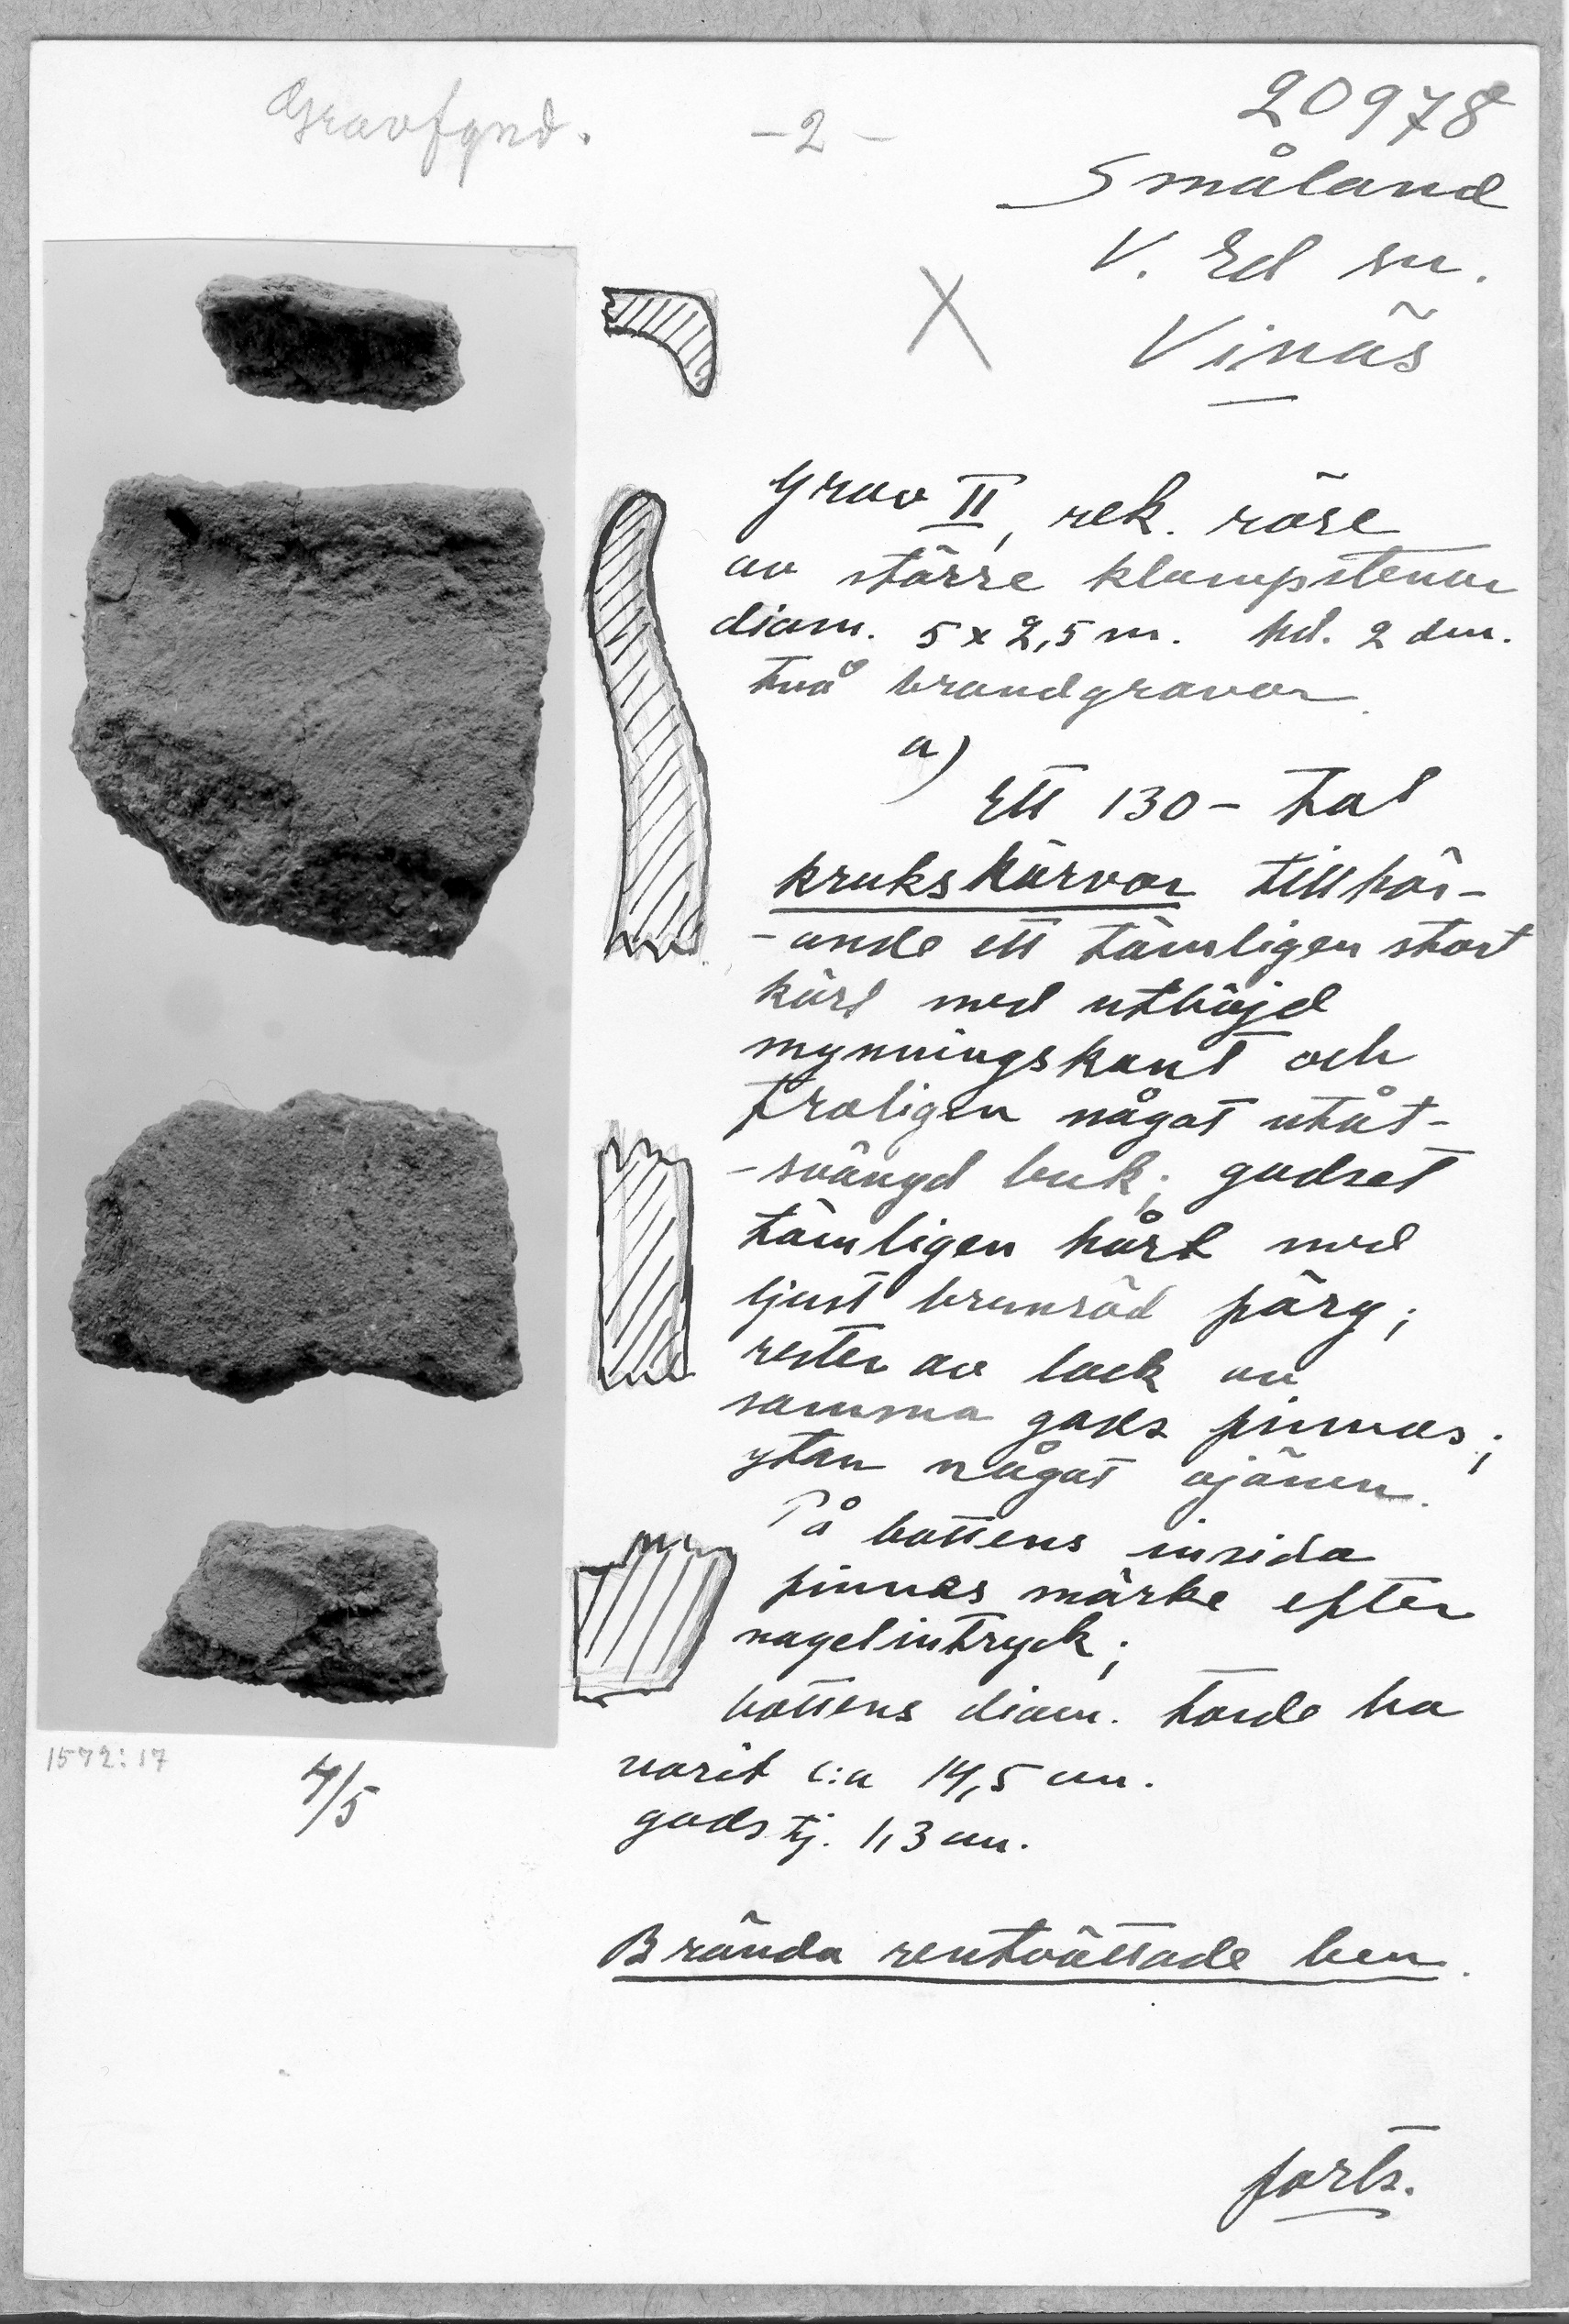 Gravfynd.
-2-
20978
Småland
V. Ed sn.
X
Vinäs
Grav II, rek. röse
av större klumpstenar
diam. 5x2,5 m. höjd. 2 dm.
två brandgravar.
a)
Ett 130-tal
krukskärvor tillhör-
-ande ett tämligen stort
kärl med utböjd
mynningskant och
troligen något utåt-
-svängd buk; godset
tämligen hårt med
ljust brunröd färg;
rester av lock av
samma gods finnas;
ytan något ojämn.
På bottens insida
finnas märke efter
nagelintryck;
bottens diam. torde ha
varit c:a 14,5 cm.
gods tj. 1,3 cm.
1572:17
4/5
Brända rentvättade ben.
forts.